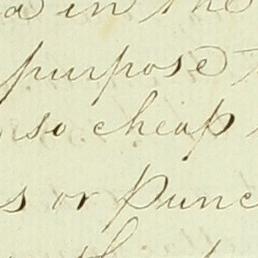 a in the
purpose
so cheap
s or punc